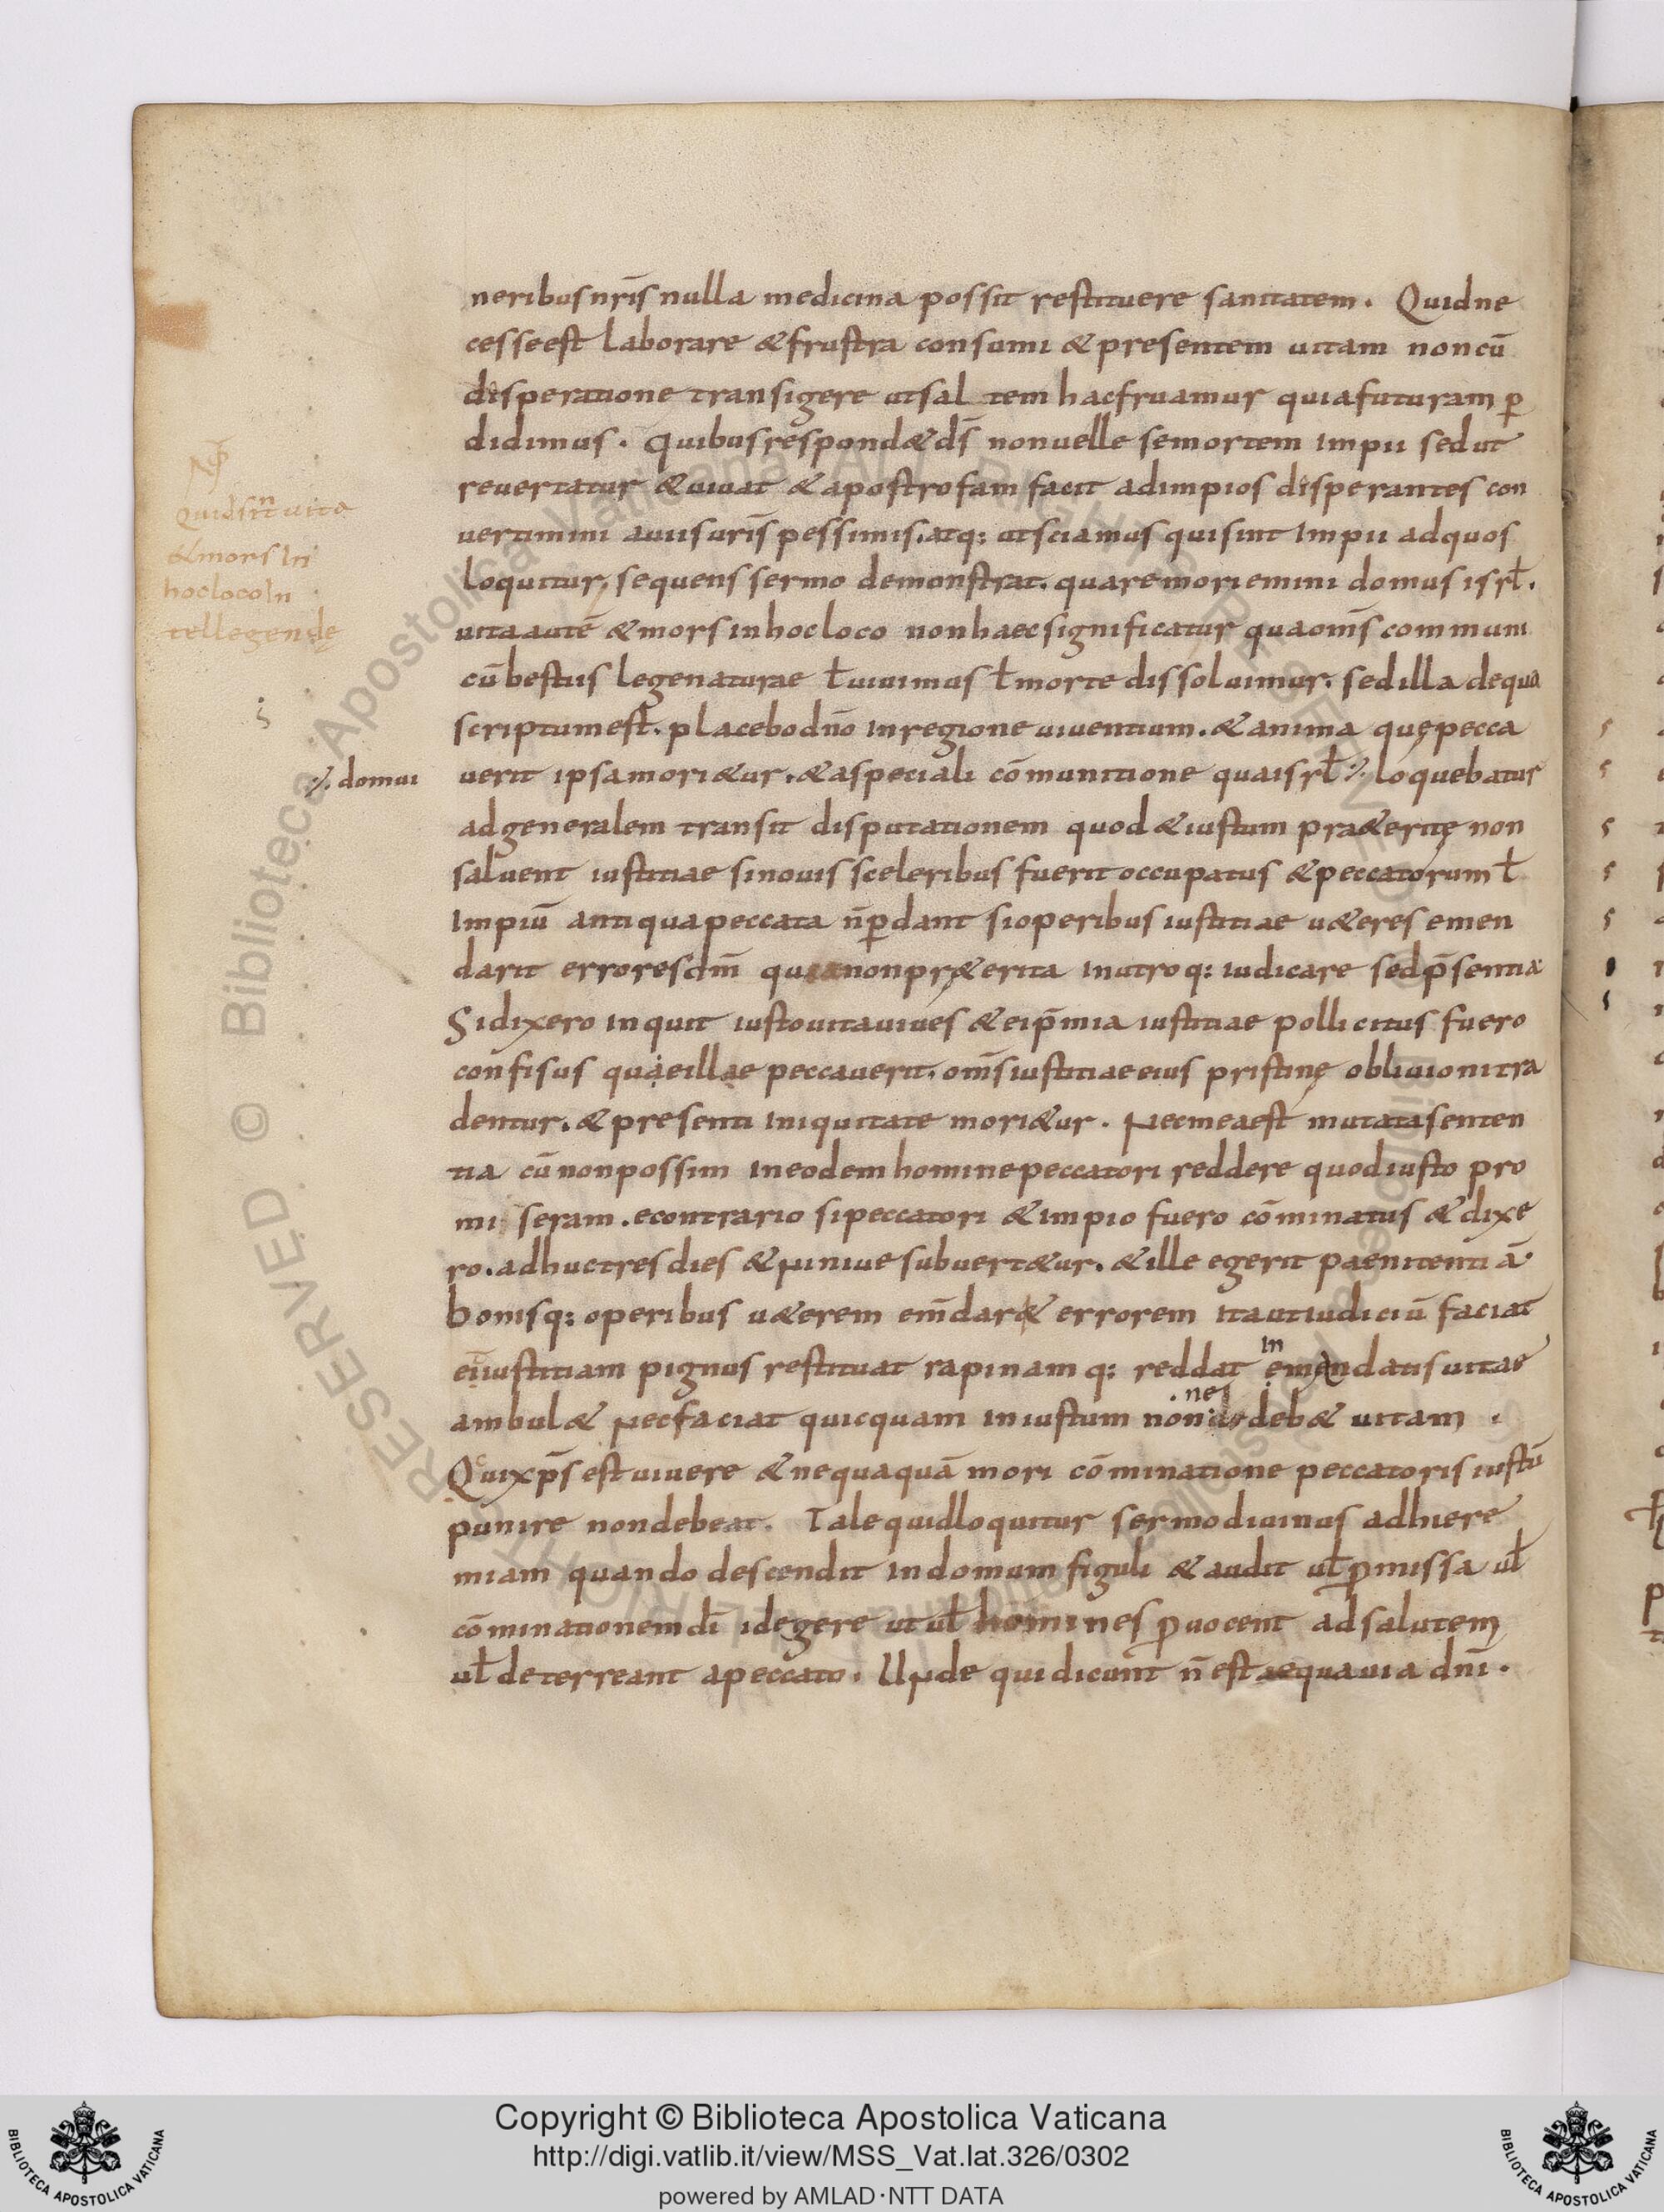 neribus nr̄is nulla medicina possit restituere sanitatem. Quid ne
cesse est laborare & frustra consumi & presentem uitam non cū
disperatione transigere ut sal tem hac fruamur quia futuram ꝑ
didimus. Quibus respond& d̄s non uelle se mortem impii sed ut
reuertatur & uiuat & apostrofam facit ad impios disperantes con
uertimini a uiis ur̄is pessimis. atq: ut sciamus qui sint impii ad quos
loquitur, sequens sermo demonstrat. quare moriemini domus isrł.
uita autē & mors in hoc loco non haec significatur qua om̄s communi
cū bestiis lege naturae ł uiuimus ł morte dissoluimur. sed illa de qua
scriptum est. placebo dn̄o in regione uiuentium. & anima quę pecca
uerit ipsa mori&ur. & a speciali cōmunitione qua isrł ⁒ loquebatur
⁒ domui
ad generalem transit disputationem quod & iustum pra&eritę non
saluent iustitiae si nouis sceleribus fuerit occupatus & peccatorum ł
impiū antiqua peccata n̄ ꝑdant si operibus iustitiae u&eres emen
darit errores dm̄ quia non pr&erita in utroq: iudicare sed p̄sentia
Si dixero inquit iusto uita uiues & ei p̄mia iustitiae pollicitus fuero
confisus quae illae peccauerit. om̄s iustitiae eius pristinę obliuioni tra
dentur. & presenti iniquitate mori&ur. Nec mea est mutata senten
tia cū non possim in eodem homine peccatori reddere quod iusto pro
mi seram. e contrario si peccatori & impio fuero cōminatus & dixe
ro. adhuc tres dies & niniue subuert&ur. & ille egerit paenitentiā
bonisq: operibus u&erem em̄dar& errorem ita ut iudiciū faciat
et iustitiam pignus restituat rapinamq: reddat in emendatis uitae
ambul& nec faciat quicquam iniustum non ne deb& uitam.
Qui xp̄s est uiuere & nequaquā mori cōminatione peccatoris iustū
punire non debeat. Tale quid loquitur sermo diuinus ad hiere
miam quando descendit in domum figuli & audit uł ꝓmissa uł
cōminationem dī id egere ut uł homines ꝓuocent ad salutem
uł deterreant a peccato. Unde qui dicunt n̄ est aequa uia dn̄i.
Quid sint uita
& mors in
hoc loco in
tellegendę